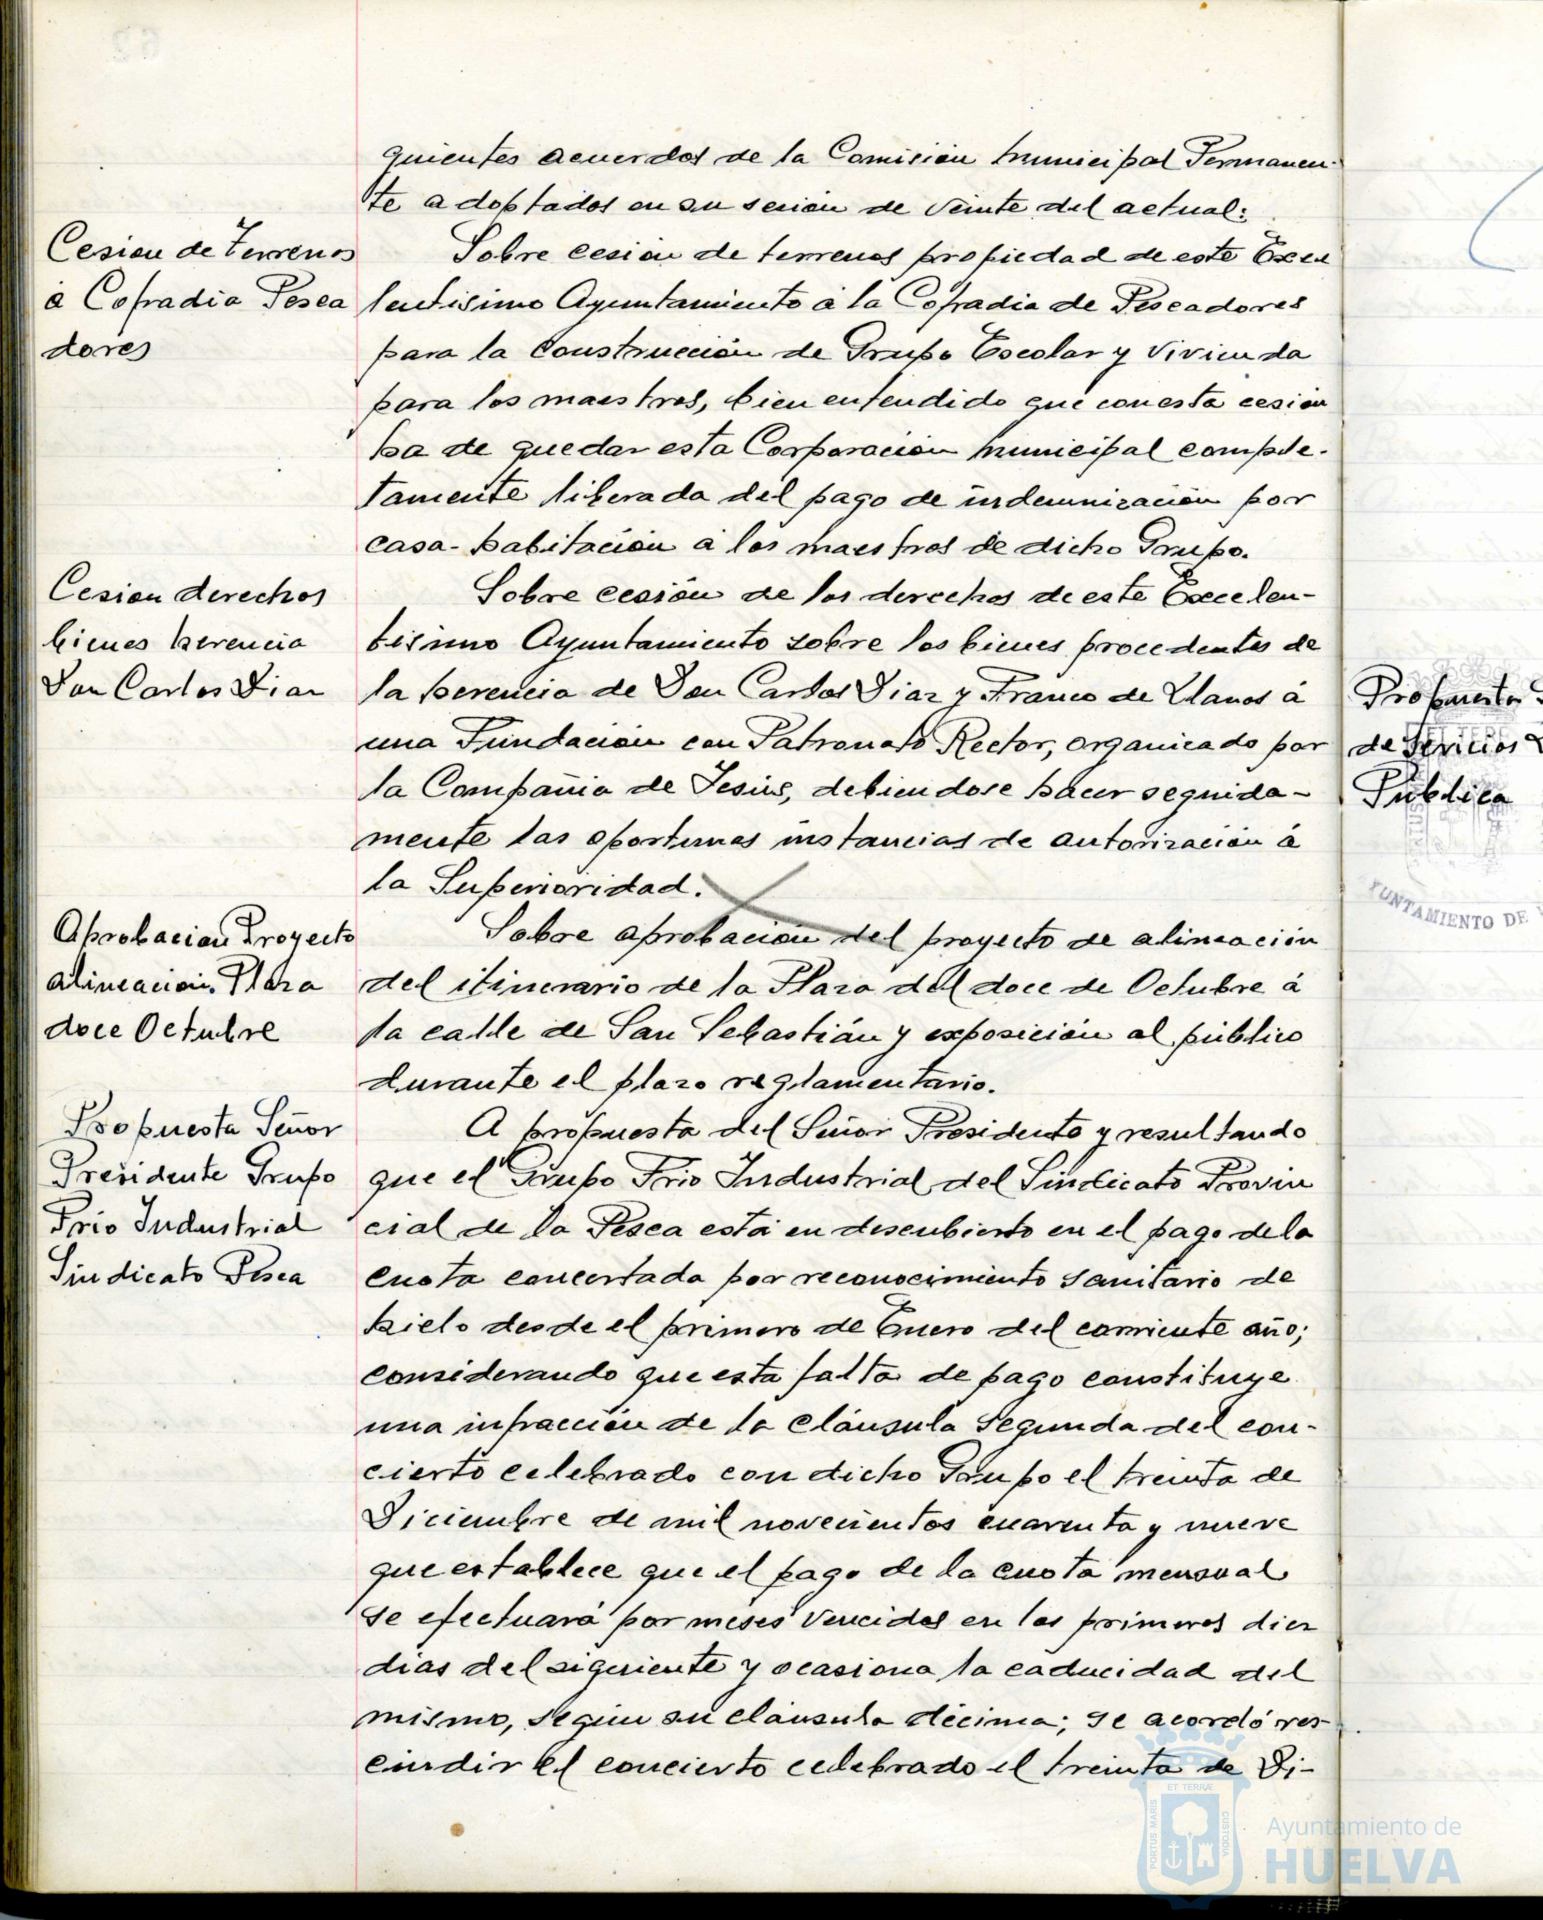 guientes acuerdos de la Comisión Municipal Permanen-
te adoptados en su sesión de veinte del actual:
Cesion de Terrenos
á Cofradia Pesca
dores
Sobre cesión de terrenos propiedad de este Exce
lentisimo Ayuntamiento á la Cofradia de Pescadores
para la construcción de Grupo Escolar y vivienda
para los maestros, bien entendido que con esta cesión
ha de quedar esta Corporación Municipal comple-
tamente liberada del pago de indemnización por
casa-habitación á los maestros de dicho Grupo.
Cesion derechos
bienes herencia
Don Carlos Diaz
Sobre cesión de los derechos de este Excelen-
tisimo Ayuntamiento sobre los bienes procedentes de
la herencia de Don Carlos Diaz y Franco de Llanos á
una Fundación con Patronato Rector, organizado por
la Compañia de Jesús, debiendose hacer seguida-
mente las oportunas instancias de autorización á
la Superioridad.
Aprobacion Proyecto
alineación Plaza
doce Octubre
Sobre aprobación del proyecto de alineación
del itinerario de la Plaza del doce de Octubre á
la calle de San Sebastián y exposición al público
durante el plazo reglamentario.
Propuesta Señor
Presidente Grupo
Frio Industrial
Sindicato Pesca
A propuesta del Señor Presidente y resultando
que el Grupo Frio Industrial del Sindicato Provin
cial de la Pesca está en descubierto en el pago de la
cuota concertada por reconocimiento sanitario de
hielo desde el primero de Enero del corriente año;
considerando que esta falta de pago constituye
una infracción de la cláusula segunda del con-
cierto celebrado con dicho Grupo el treinta de
Diciembre de mil novecientos cuarenta y nueve
que establece que el pago de la cuota mensual
se efectuará por meses vencidos en los primeros diez
dias del siguiente y ocasiona la caducidad del
mismo, según su cláusula décima; se acordó res-
cindir el concierto celebrado el treinta de Di-
Propuesta
de Servicios
Publica
YUNTAMIENTO DE
ET TERRÆ
PORTUS MARIS
CUSTODIA
Ayuntamiento de
HUELVA